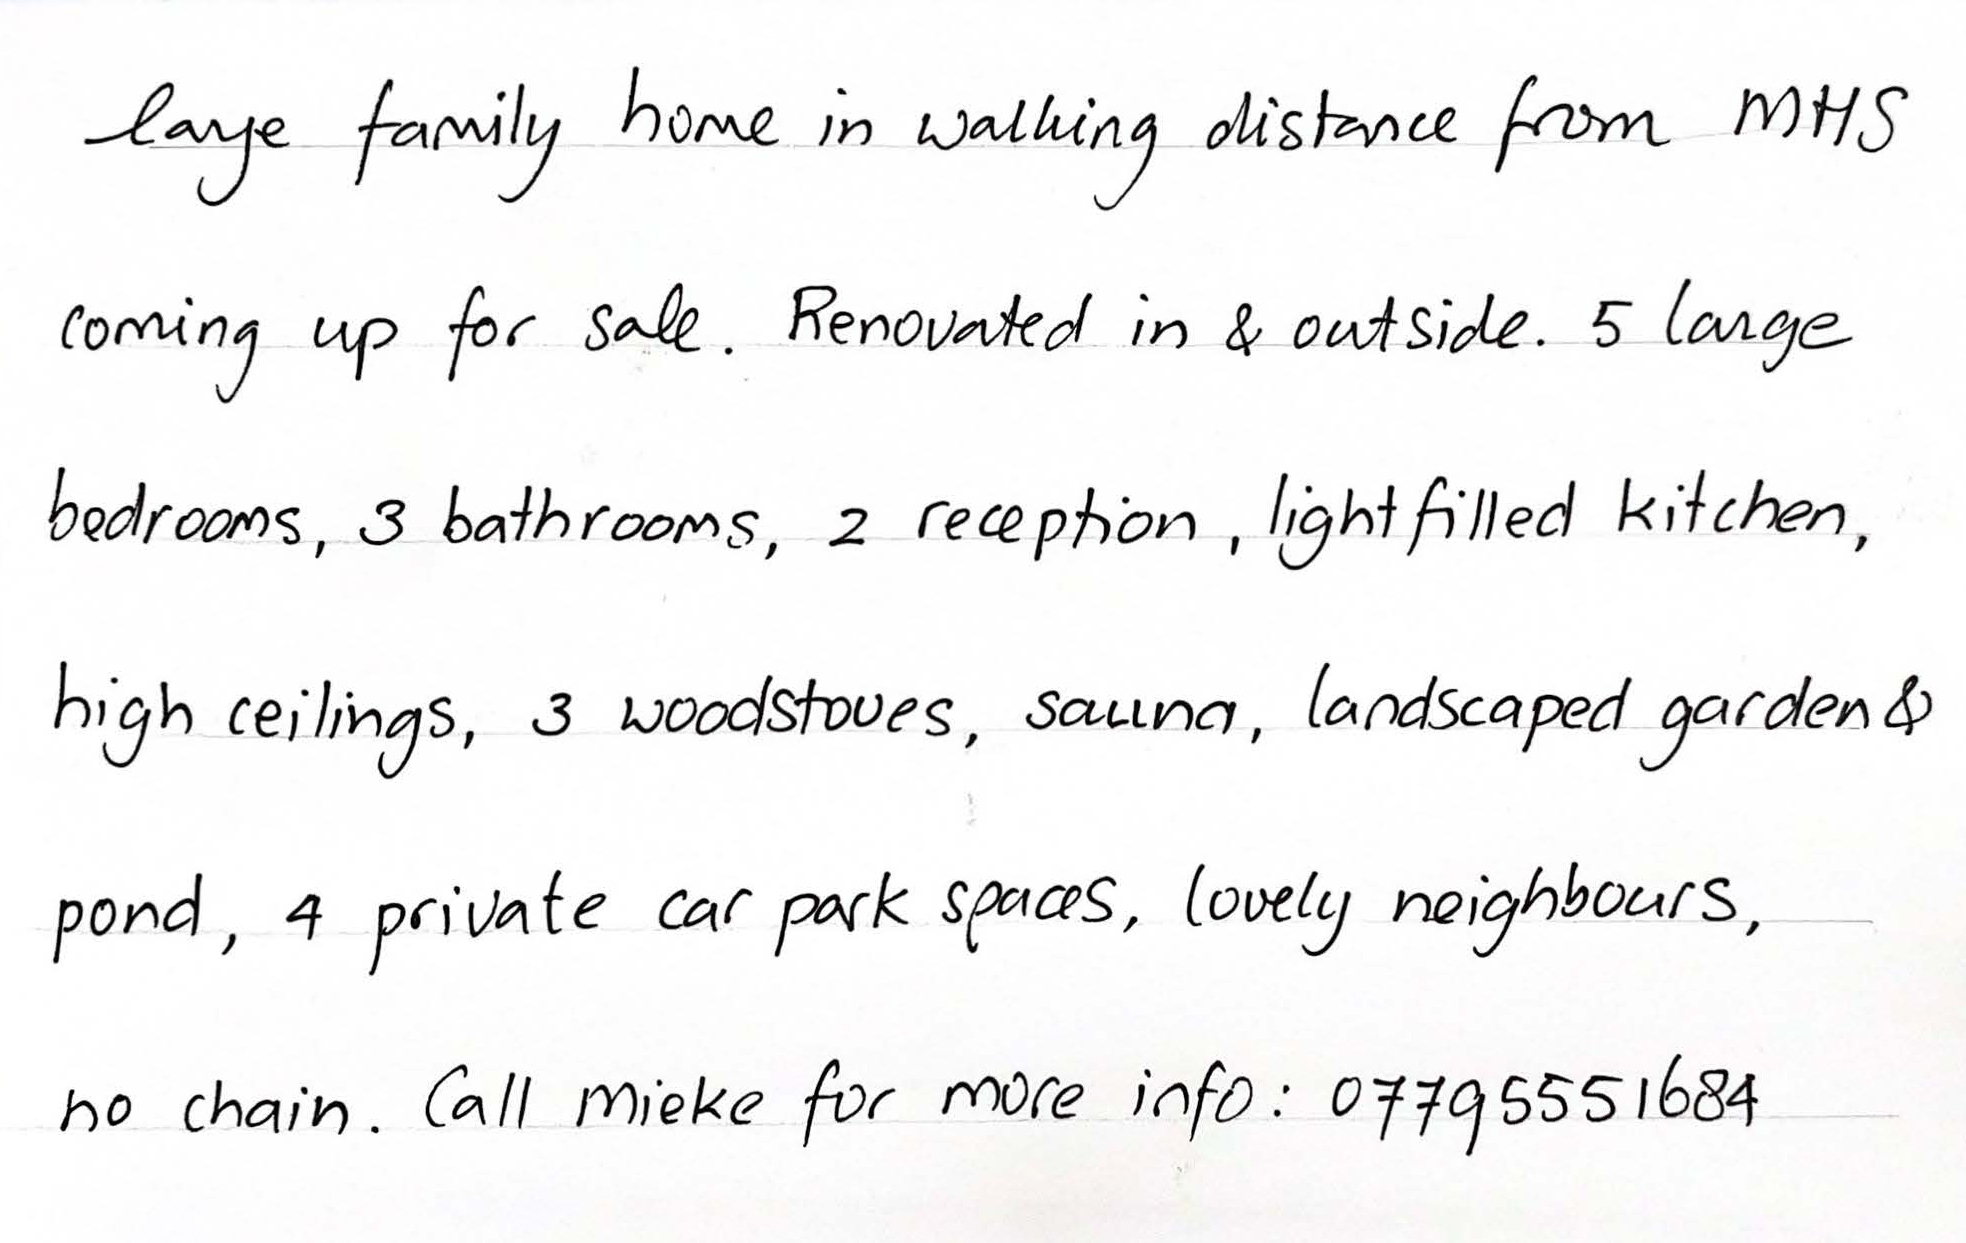 large family home in walking distance from MHS
coming up for sale. Renovated in & outside. 5 large
bedrooms, 3 bathrooms, 2 reception, lightfilled kitchen,
high ceilings, 3 woodstoves, sauna, landscaped garden &
pond, 4 private car park spaces, lovely neighbours,
no chain. Call Mieke for more info: 07795551684